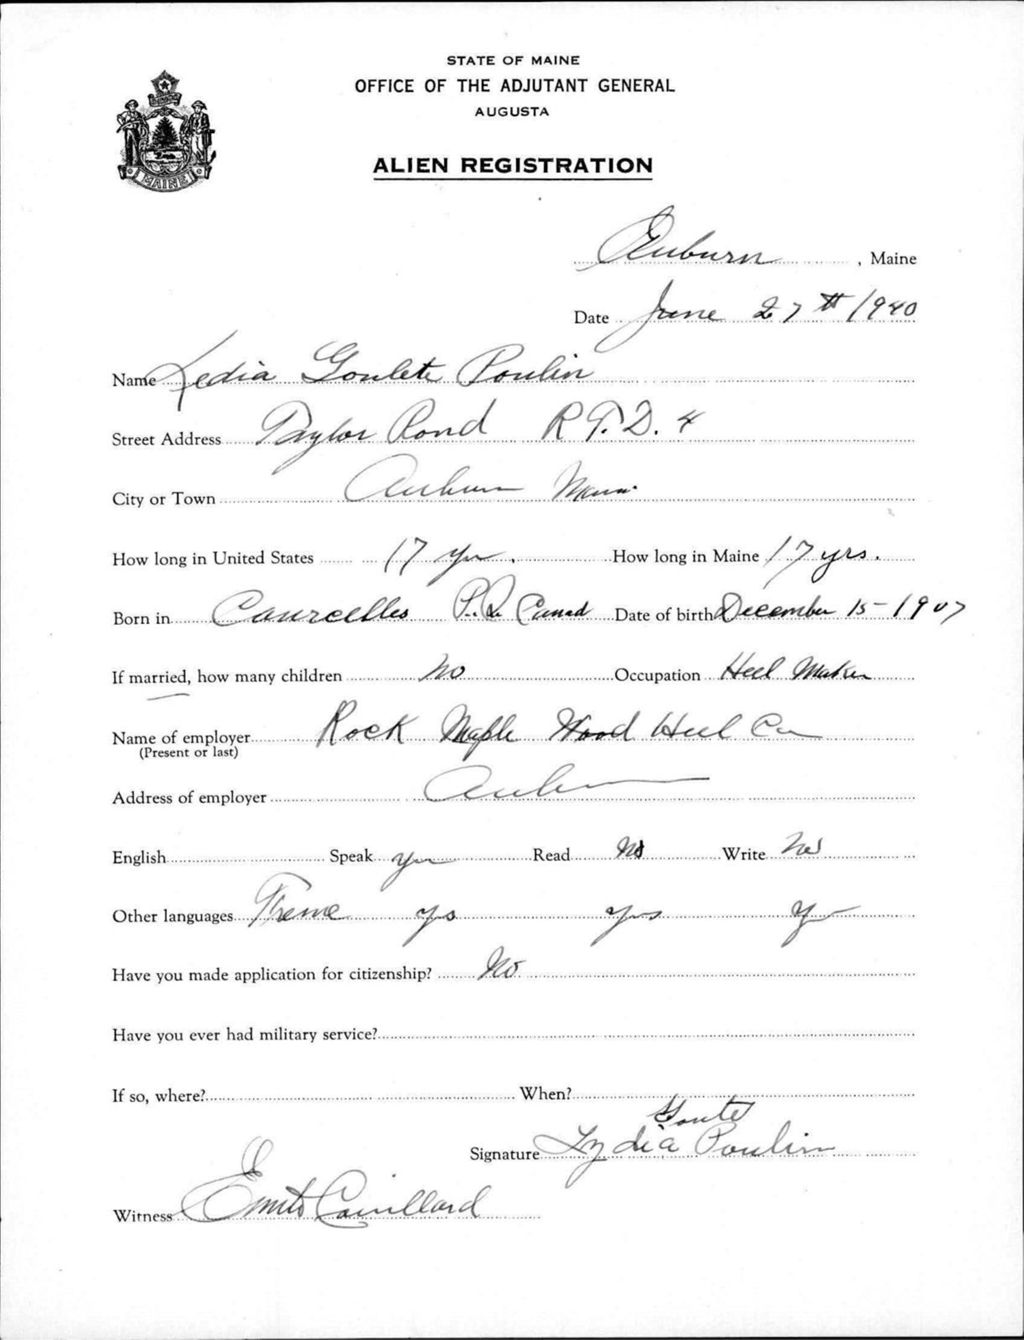 STATE OF MAINE
OFFICE OF THE ADJUTANT GENERAL
AUGUSTA
MAINE
ALIEN REGISTRATION
Auburn, Maine
Date June 27th 1940
Name Ledia Goulete Poulin
Street Address Taylor Pond R.F.D. 4
City or Town Auburn Maine
How long in United States 17 yrs. How long in Maine 17 yrs.
Born in Caurcelles P.Q. Canad Date of birth December 15-1907
If married, how many children No Occupation Heel Maker
Name of employer Rock Maple Wood Heel Co
(Present or last)
Address of employer Auburn
English Speak Yes Read No Write No
Other languages yes yes yes
Have you made application for citizenship? No
Have you ever had military service?
If so, where? When?
Signature Lydia Poulin
Witness